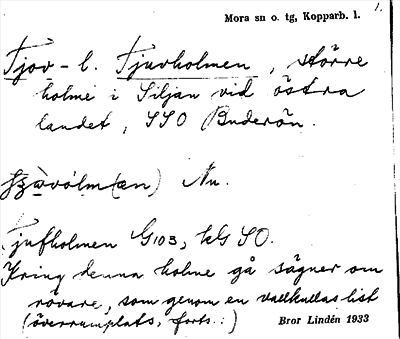 Mora sn o. tg, Kopparb. l.
1.
Tjov- l. Tjuvholmen, större
holme i Siljan vid östra
landet, SSO Buderön.
Nu.
Tjufholmen G103, kG SO.
Kring denna holme gå sägner om
rövare, som genom en vallkullas list
(överrumplats, forts.:)
Bror Lindén 1933